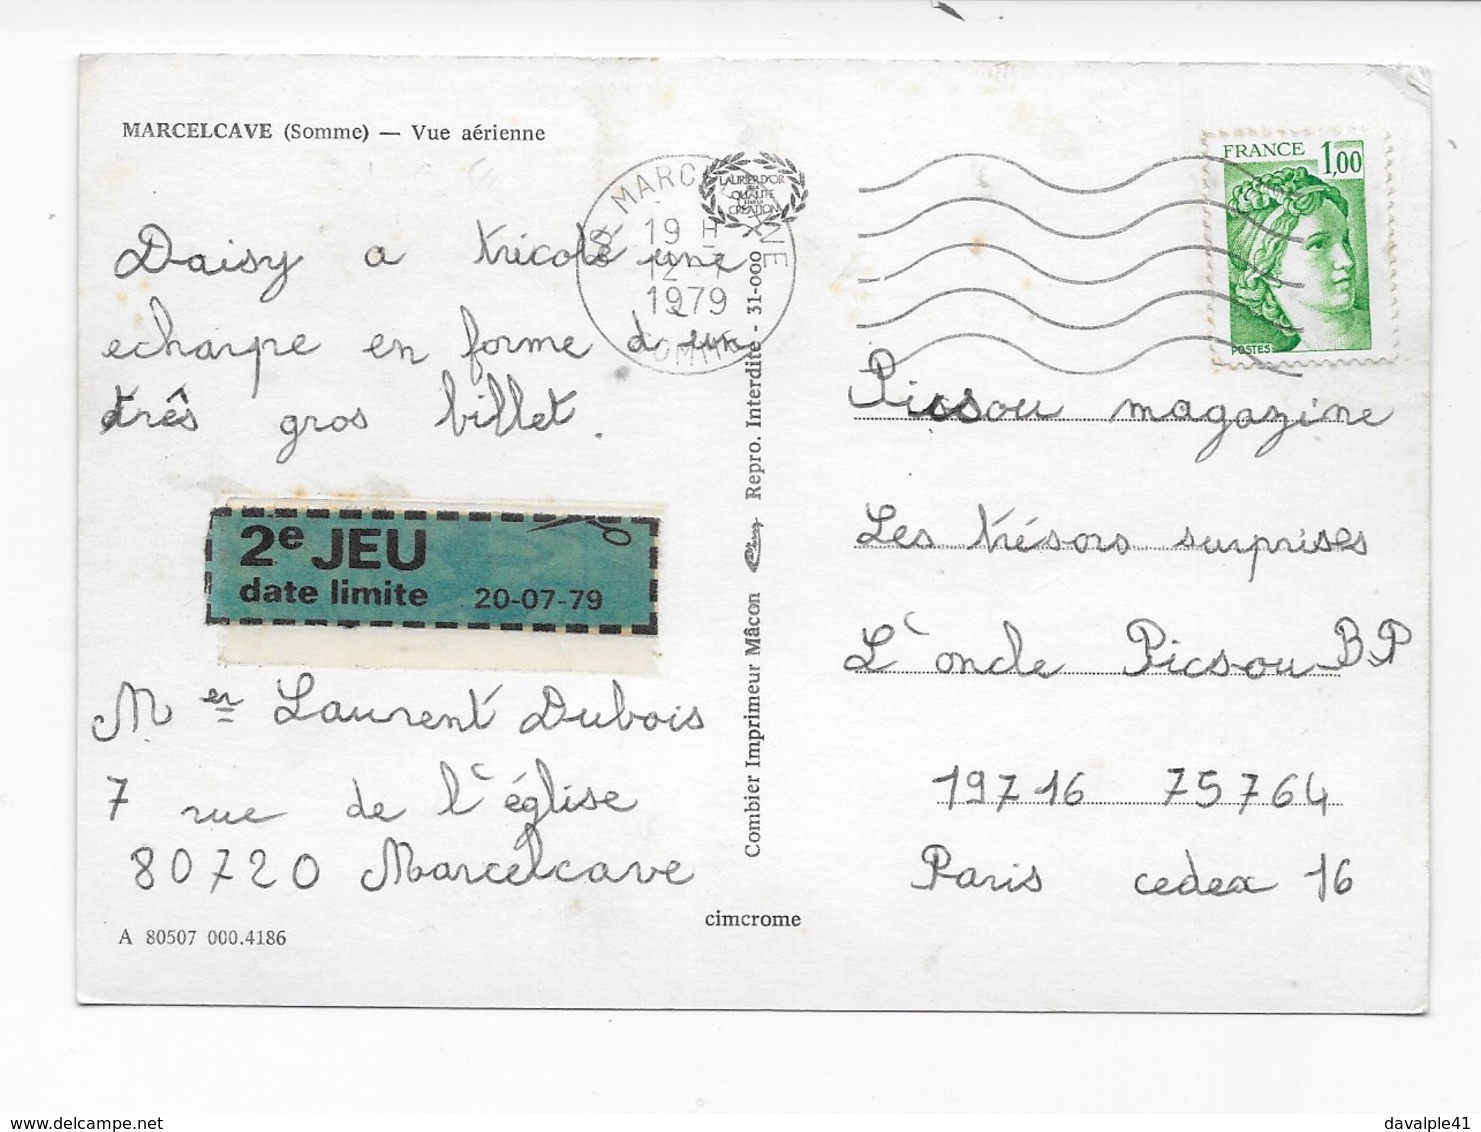 MARCELCAVE (Somme) — Vue aérienne
Daisy a tricoté une
echarpe en forme de un
très gros billet.
2e JEU
date limite 20-07-79
Mer Laurent Dubois
7 rue de l'église
80720 Marcelcave
A 80507 000.4186
LAURIER D'OR
DE LA
QUALITÉ
CRÉATION
19 H
12 - 7
1979
SOMME
Combier Imprimeur Mâcon Cim Repro. Interdite - 31-000
cimcrome
FRANCE 1,00
POSTES
Picsou magazine
Les trésors surprises
L'oncle Picsou B.P
19716 75764
Paris cedex 16
delcampe.net
davalple41